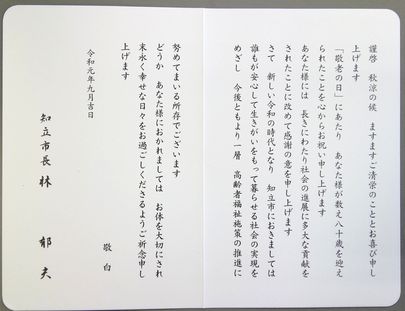 謹啓　秋涼の候　ますますご清栄のこととお喜び申し
上げます
「敬老の日」にあたり　あなた様が数え八十歳を迎え
られたことを心からお祝い申し上げます
あなた様には　長きにわたり社会の進展に多大な貢献を
されたことに改めて感謝の意を申し上げます
さて　新しい令和の時代となり　知立市におきましては
誰もが安心して生きがいをもって暮らせる社会の実現を
めざし　今後ともより一層　高齢者福祉施策の推進に
努めてまいる所存でございます
どうか　あなた様におかれましては　お体を大切にされ
末永く幸せな日々をお過ごしくださるようご祈念申し
上げます
敬　白
令和元年九月吉日
知立市長　林　郁夫